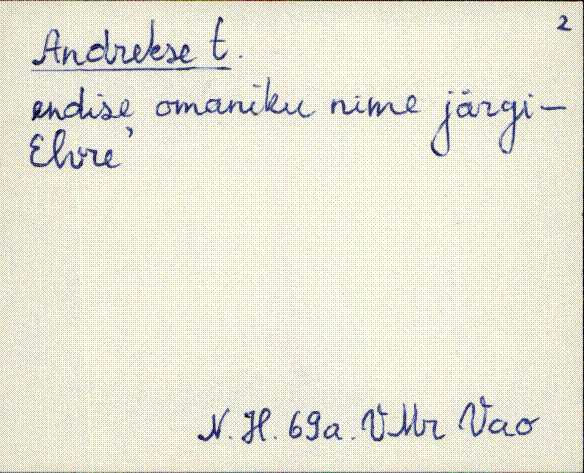 2
Andrekse t.
endise omaniku nime järgi –
Elvre'
N. H. 69a. VMr Vao